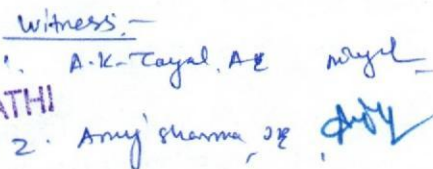 Witness:-
1. A.K. Tayal, AE
ATHI
2. Anuj Sharma, JE